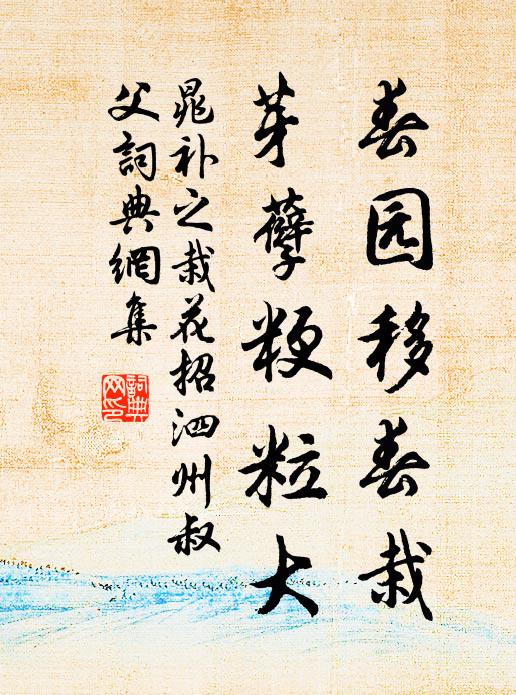 春园移春栽
芽孽粳粒大
晁补之栽花招泗州叔
父詞典網集
詞典
网印